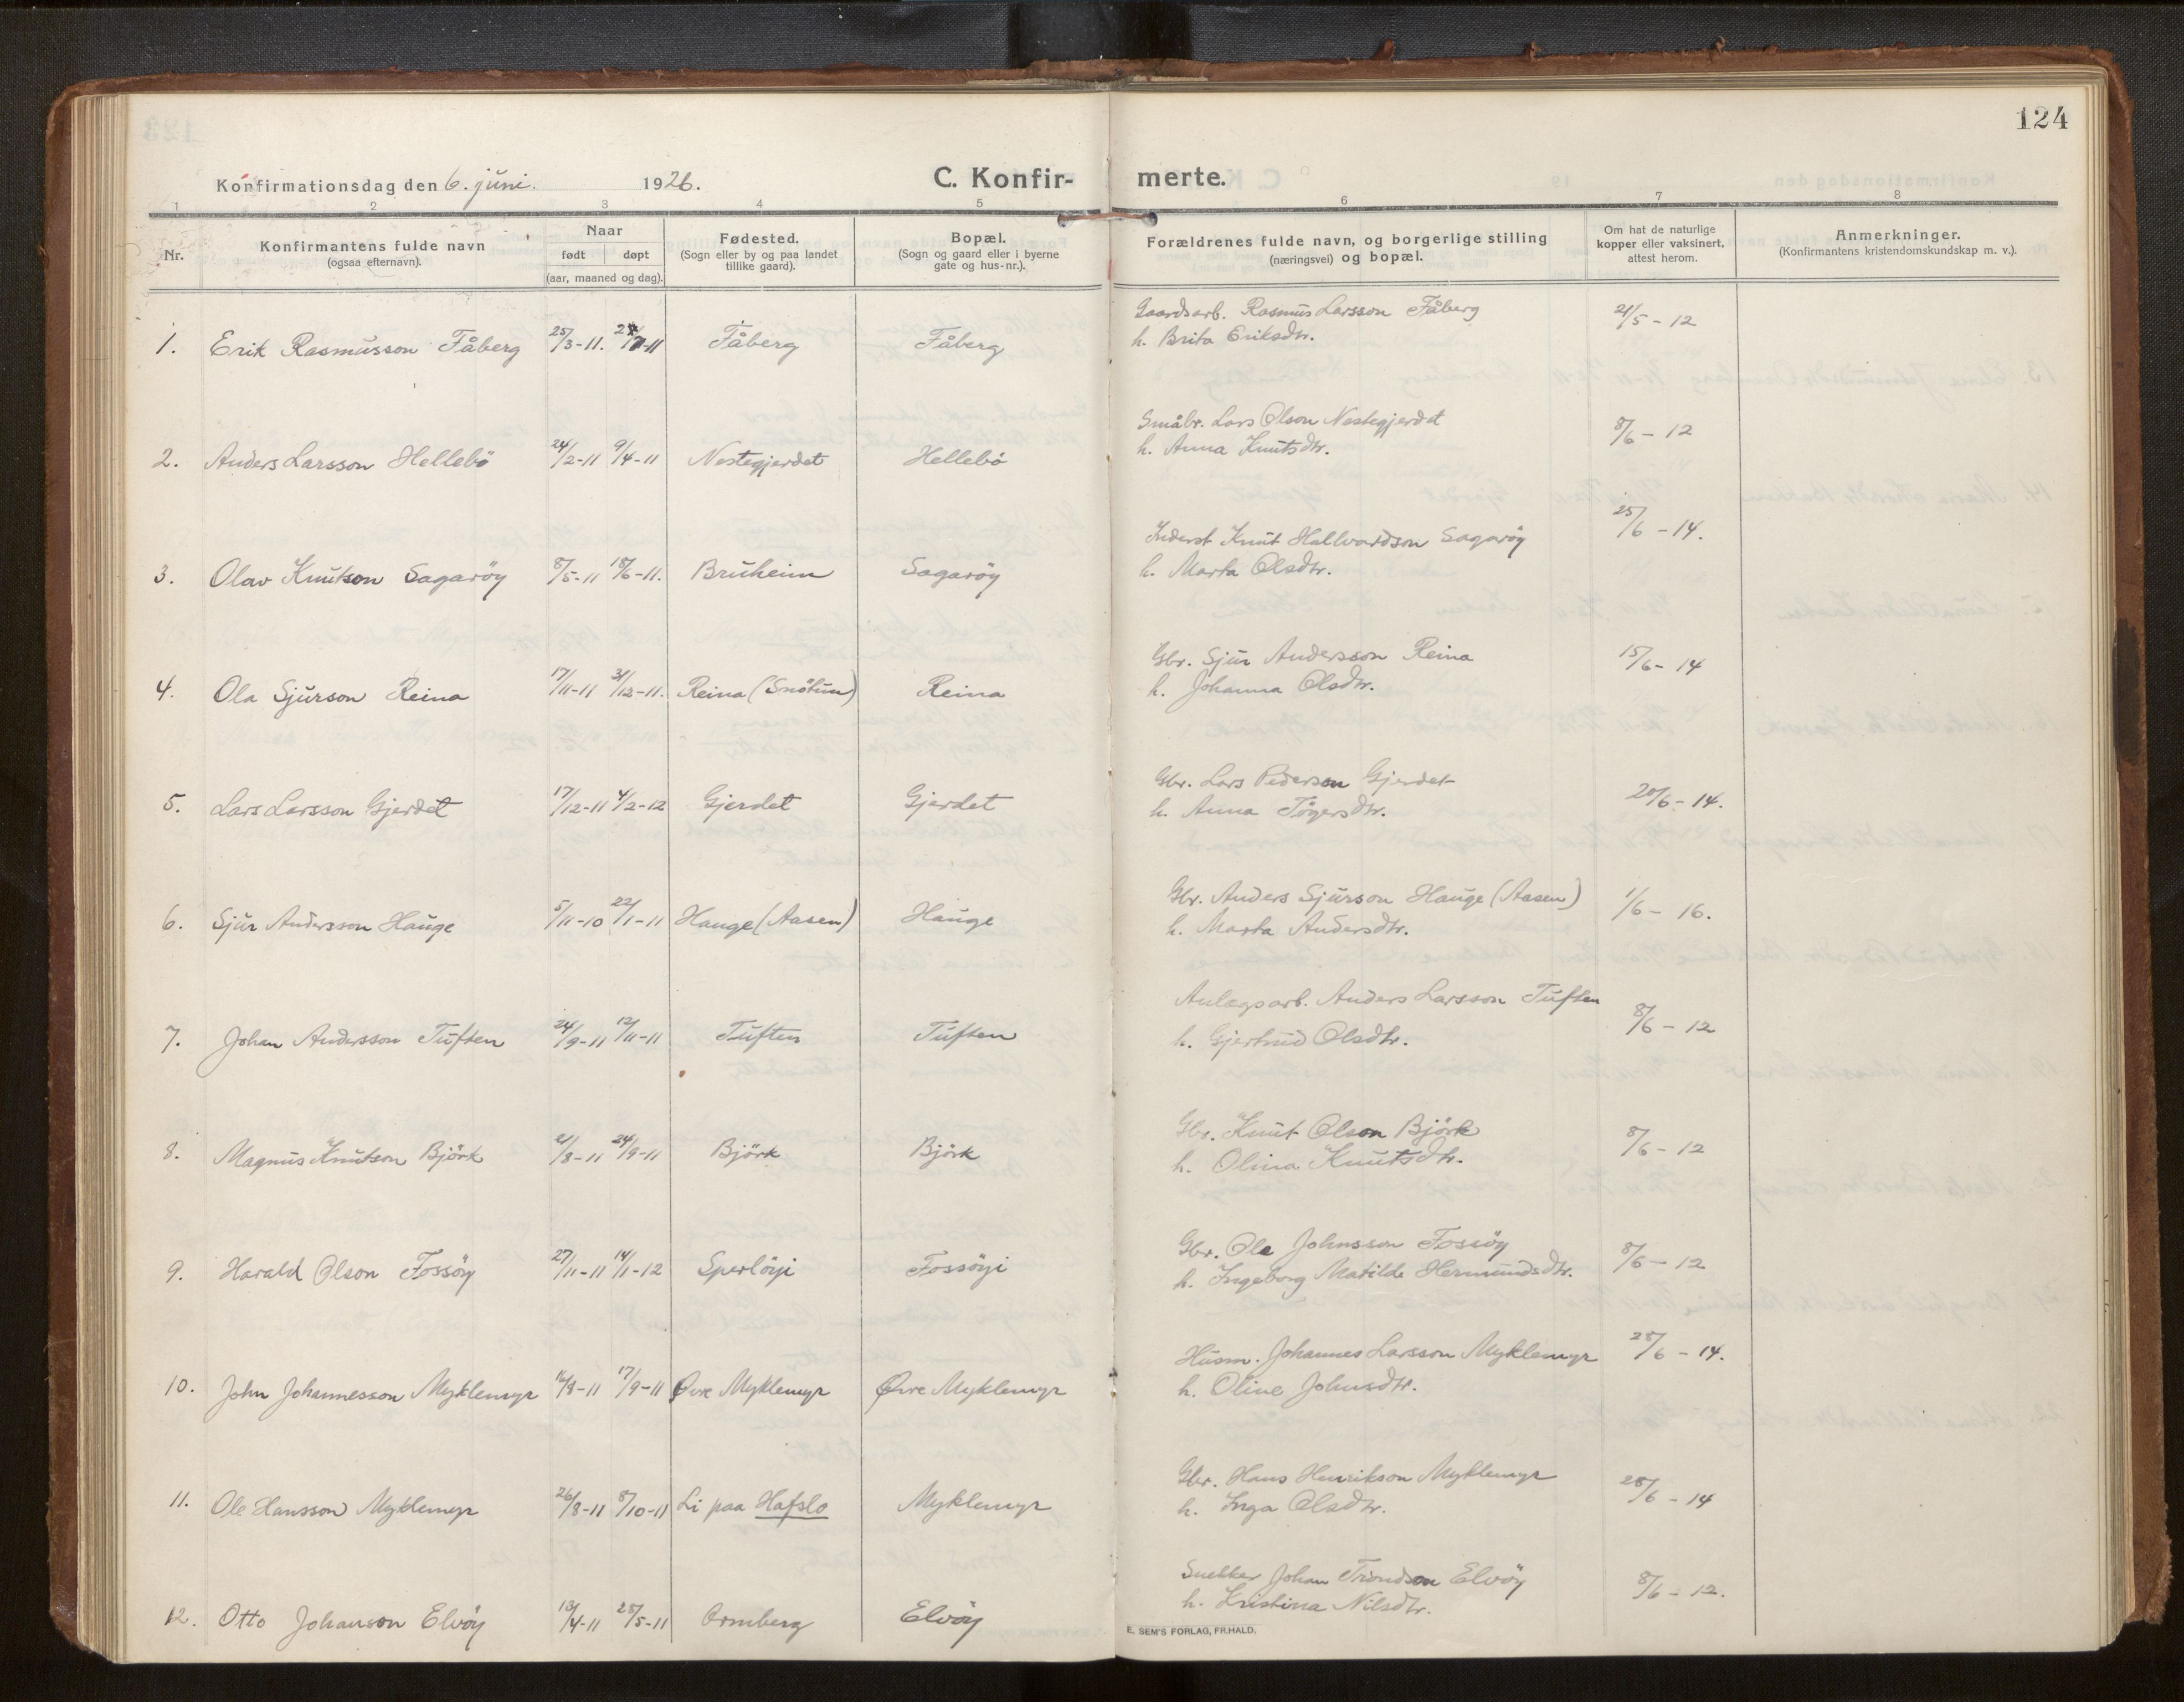 124
Konfirmationsdag den 6. juni. 1926.
C. Konfirmerte.
1 2 3 4 5 6 7 8
Nr.
Konfirmantens fulde navn
(ogsaa efternavn).
Naar
født døpt
(aar, maaned og dag).
Fødested.
(Sogn eller by og paa landet
tillike gaard).
Bopæl.
(Sogn og gaard eller i byerne
gate og hus-nr.).
Forældrenes fulde navn, og borgerlige stilling
(næringsvei) og bopæl.
Om hat de naturlige
kopper eller vaksinert,
attest herom.
Anmerkninger.
(Konfirmantens kristendomskundskap m. v.).
Gaardsarb. Rasmus Larsson Fåberg 21/5 - 12
1. Erik Rasmusson Fåberg 25/3-11. Fåberg Fåberg h. Brita Eriksdtr.
Småbr. Lars Olson Nestegjerdet 8/6 - 12
2. Anders Larsson Hellebö 24/2-11 9/4-11 Nestegjerdet Hellebö h. Anna Knutsdtr.
Inderst Knut Hallvardson Sagaröy 25/6 - 14.
3. Olav Knutson Sagaröy 8/5-11 18/6-11. Bruheim Sagaröy h. Marta Olsdtr.
Gbr. Sjur Andersson Reina 15/6 - 14
4. Ola Sjurson Reina 17/11-11 31/12-11. Reina (Snötun) Reina h. Johanna Olsdtr.
Gbr. Lars Pederson Gjerdet 20/6 - 14.
5. Lars Larsson Gjerdet 17/12-11 4/2-12 Gjerdet Gjerdet h. Anna Tögersdtr.
Gbr. Anders Sjurson Hauge (Aasen) 1/6 - 16.
6. Sjur Andersson Hauge 5/11-10 22/1-11 Hauge (Aasen) Hauge h. Marta Andersdtr.
Anlegsarb. Anders Larsson Tuften 8/6 - 12
7. Johan Andersson Tuften 24/9-11 12/11-11 Tuften Tuften h. Gjertrud Olsdtr.
Gbr. Knut Olson Björk 8/6 - 12
8. Magnus Knutson Björk 21/8-11 24/9-11 Björk Björk h. Olina Knutsdtr.
Gbr. Ole Johnsson Fossöy 8/6 - 12
9. Harald Olson Fossöy 27/11-11 14/1-12 Sperlöyi Fossöyi h. Ingeborg Matilde Hermundsdtr.
Husm. Johannes Larsson Myklemyr 28/6 - 14.
10. John Johannesson Myklemyr 16/8-11 17/9-11 Øvre Myklemyr Øvre Myklemyr h. Oline Johnsdtr.
Gbr. Hans Henrikson Myklemyr 28/6 - 14
11. Ole Hansson Myklemyr 26/8-11 8/10-11 Li paa Hafslo Myklemyr h. Inga Olsdtr.
Snekker Johan Trondson Elvöy 8/6 - 12.
12. Otto Johanson Elvöy 13/4-11 28/5-11 Ormberg Elvöy h. Kristina Nilsdtr.
E. SEM'S FORLAG, FR.HALD.